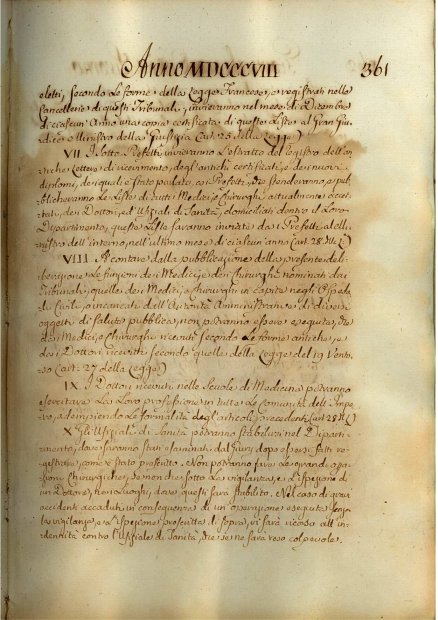 Anno MDCCCVIII 361
eletti, secondo le forme della Legge Francese, e registrati nelle
Cancellerie di questi Tribunali, invieranno nel mese di Dicembre
di ciascun Anno una copia certificata di queste Liste al Gran Giu-
dice e Ministro della Giustizia (art. 25 della Legge)
VII. I Sotto Prefetti invieranno l'estratto del registro dell'an-
tiche Lettere di ricevimento, degl'antichi certificati, e dei nuovi
diplomi, dei quali è stato parlato, ai Prefetti, che stenderanno, e pub-
blicheranno le Liste di tutti i Medici, e Chirurghi attualmente accet-
tati, dei Dottori, ed Uffiziali di Sanità, domiciliati dentro il Loro
Dipartimento, queste Liste saranno inviate dai Prefetti al Mi-
nistro dell'interno, nell'ultimo mese di ciascun anno (art. 28 )
VIII. A contare dalla pubblicazione della presente deli-
berazione Le funzioni dei Medici, e dei Chirurghi nominati dai
Tribunali, quelle dei Medici, e Chirurghi in capite negli Ospeda-
li Civili, o incaricati dall'Autorità Amministrative di diversi
oggetti di salute pubblica, non potranno essere eseguite, che
dai Medici, e Chirurghi ricevuti secondo le forme antiche, o
dai Dottori ricevuti secondo quelle della Legge del 19 Vento-
so (art. 27 della Legge)
IX. I Dottori ricevuti nelle Scuole di Medicina potranno
esercitare La Loro professione in tutte Le Comunità dell'Impe-
ro, adempiendo Le formalità degl'articoli precedenti (art. 28 )
X. Gli Uffiziali di Sanità potranno stabilirsi nel Diparti-
mento, dove saranno stati esaminati dal Jury dopo essersi fatti re-
gistrare, come è stato prescritto. Non potranno fare Le grandi ope-
razioni Chirurgiche, se non che sotto La vigilanza, e l'Ispezione di
un Dottore, nei Luoghi, dove questi sarà stabilito. Nel caso di gravi
accidenti accaduti in conseguenza di un'operazione eseguita senza
la vigilanza, e l'Ispezione prescritta di sopra, vi sarà ricorso all'in-
dennità contro l'Uffiziale di Sanità, che se ne sarà reso colpevole.